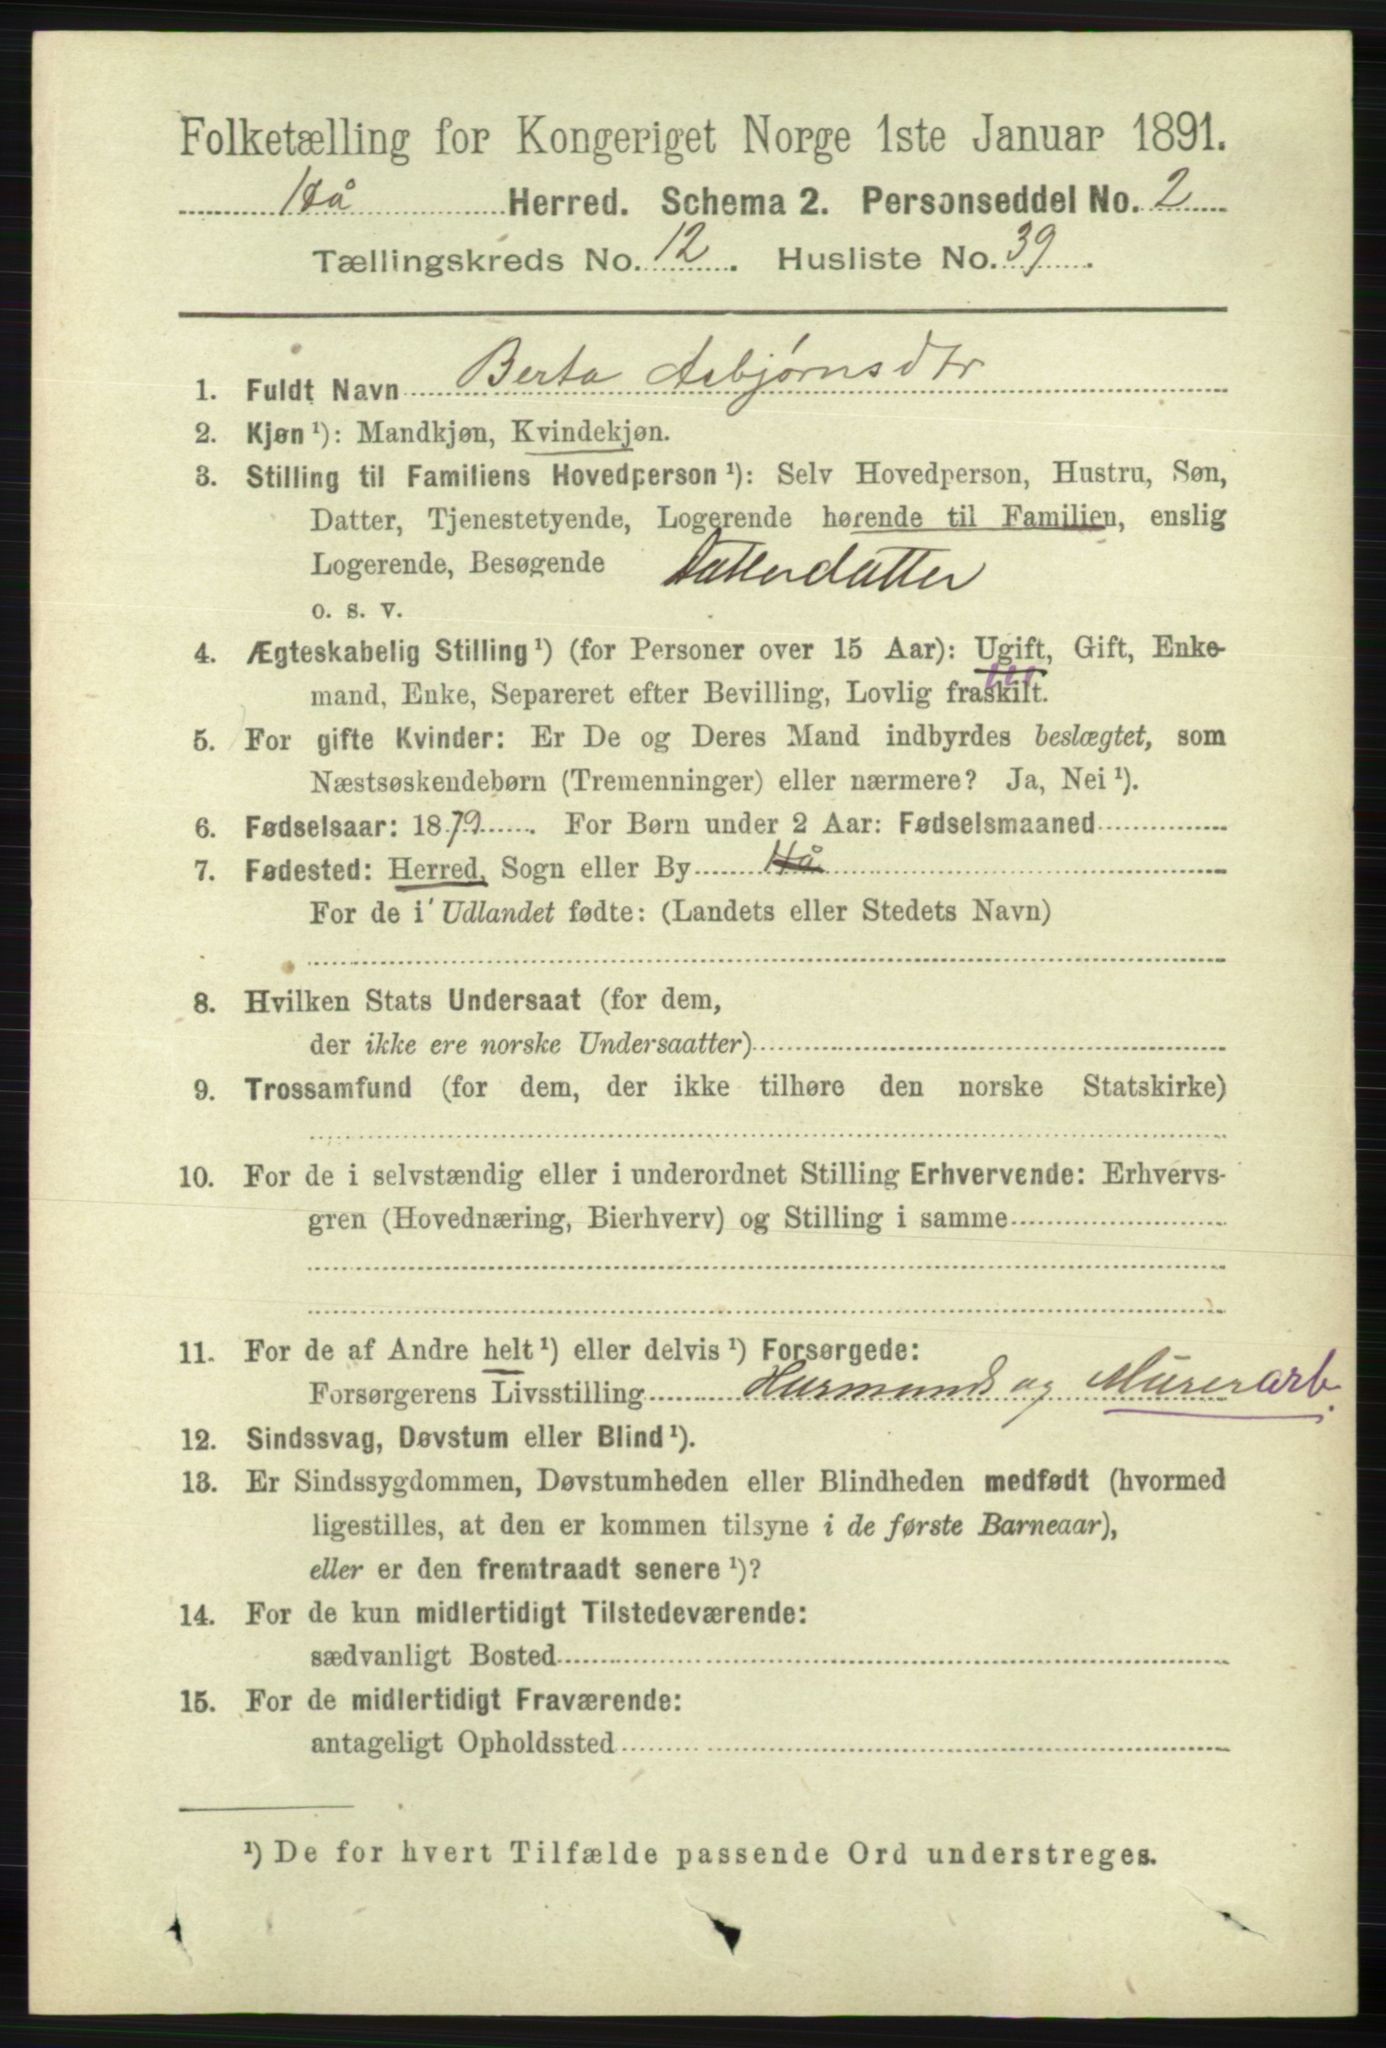 Folketælling for Kongeriget Norge 1ste Januar 1891.
Hå Herred. Schema 2. Personseddel No. 2
Tællingskreds No. 12. Husliste No. 39.
1. Fuldt Navn Berta Asbjørnsdtr
2. Kjøn ¹): Mandkjøn, Kvindekjøn.
3. Stilling til Familiens Hovedperson ¹): Selv Hovedperson, Hustru, Søn,
Datter, Tjenestetyende, Logerende hørende til Familien, enslig
Logerende, Besøgende Datterdatter
o. s. v.
4. Ægteskabelig Stilling ¹) (for Personer over 15 Aar): Ugift, Gift, Enke-
mand, Enke, Separeret efter Bevilling, Lovlig fraskilt.
5. For gifte Kvinder: Er De og Deres Mand indbyrdes beslægtet, som
Næstsøskendebørn (Tremenninger) eller nærmere? Ja, Nei ¹).
6. Fødselsaar: 1879. For Børn under 2 Aar: Fødselsmaaned
7. Fødested: Herred, Sogn eller By Hå
For de i Udlandet fødte: (Landets eller Stedets Navn)
8. Hvilken Stats Undersaat (for dem,
der ikke ere norske Undersaatter)
9. Trossamfund (for dem, der ikke tilhøre den norske Statskirke)
10. For de i selvstændig eller i underordnet Stilling Erhvervende: Erhvervs-
gren (Hovednæring, Bierhverv) og Stilling i samme
11. For de af Andre helt ¹) eller delvis ¹) Forsørgede:
Forsørgerens Livsstilling Husmand og Murerarb.
12. Sindssvag, Døvstum eller Blind ¹).
13. Er Sindssygdommen, Døvstumheden eller Blindheden medfødt (hvormed
ligestilles, at den er kommen tilsyne i de første Barneaar),
eller er den fremtraadt senere ¹)?
14. For de kun midlertidigt Tilstedeværende:
sædvanligt Bosted
15. For de midlertidigt Fraværende:
antageligt Opholdssted
¹) De for hvert Tilfælde passende Ord understreges.